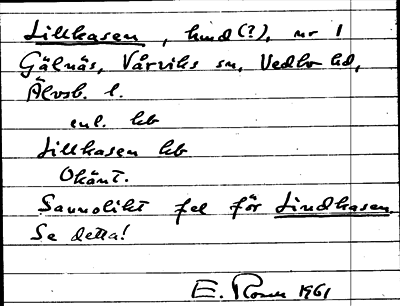 Lillhasen, hind(?), nr 1
Gälnäs, Vårviks sn, Vedbo hd,
Älvsb. l.
enl. kb
Lillhasen kb
Okänt.
Sannolikt fel för Lindhasen.
Se detta!
E. Rosen 1961